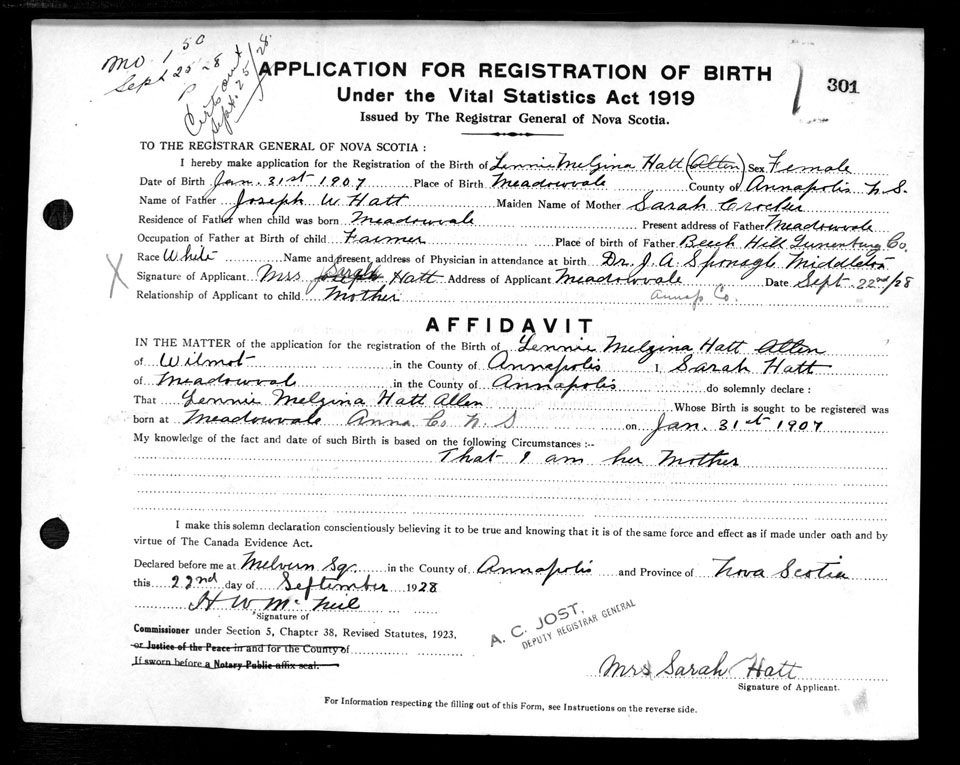 MO. 1 50
Sept 25-28
P
Certs out
Sept. 25/28.
APPLICATION FOR REGISTRATION OF BIRTH
301
Under the Vital Statistics Act 1919
Issued by The Registrar General of Nova Scotia.
TO THE REGISTRAR GENERAL OF NOVA SCOTIA :
I hereby make application for the Registration of the Birth of Lennie Melzina Hatt (Allen) Sex Female
Date of Birth Jan. 31st 1907 Place of Birth Meadowvale County of Annapolis N. S.
Name of Father Joseph W Hatt Maiden Name of Mother Sarah Crocker
Residence of Father when child was born Meadowvale Present address of Father Meadowvale
Occupation of Father at Birth of child Farmer Place of birth of Father Beech Hill Lunenburg Co.
Race White Name and present address of Physician in attendance at birth Dr. J. A. Sponagle Middleton
X Signature of Applicant Mrs Joseph Sarah Hatt Address of Applicant Meadowvale Date Sept 22nd/28
Relationship of Applicant to child Mother Annap Co.
AFFIDAVIT
IN THE MATTER of the application for the registration of the Birth of Lennie Melzina Hatt Allen
of Wilmot in the County of Annapolis I, Sarah Hatt
of Meadowval in the County of Annapolis do solemnly declare :
That Lennie Melzina Hatt Allen Whose Birth is sought to be registered was
born at Meadowvale Anna Co N. S on Jan. 31st 1907
My knowledge of the fact and date of such Birth is based on the following Circumstances :--
That I am her Mother
I make this solemn declaration conscientiously believing it to be true and knowing that it is of the same force and effect as if made under oath and by
virtue of The Canada Evidence Act.
Declared before me at Melvern Sq. in the County of Annapolis and Province of Nova Scotia
this 22nd day of September 1928
H W McNeil
*Signature of
Commissioner under Section 5, Chapter 38, Revised Statutes, 1923,
or Justice of the Peace in and for the County of
If sworn before a Notary Public affix seal.
A. C. JOST,
DEPUTY REGISTRAR GENERAL
Mrs Sarah Hatt
Signature of Applicant.
For Information respecting the filling out of this Form, see Instructions on the reverse side.